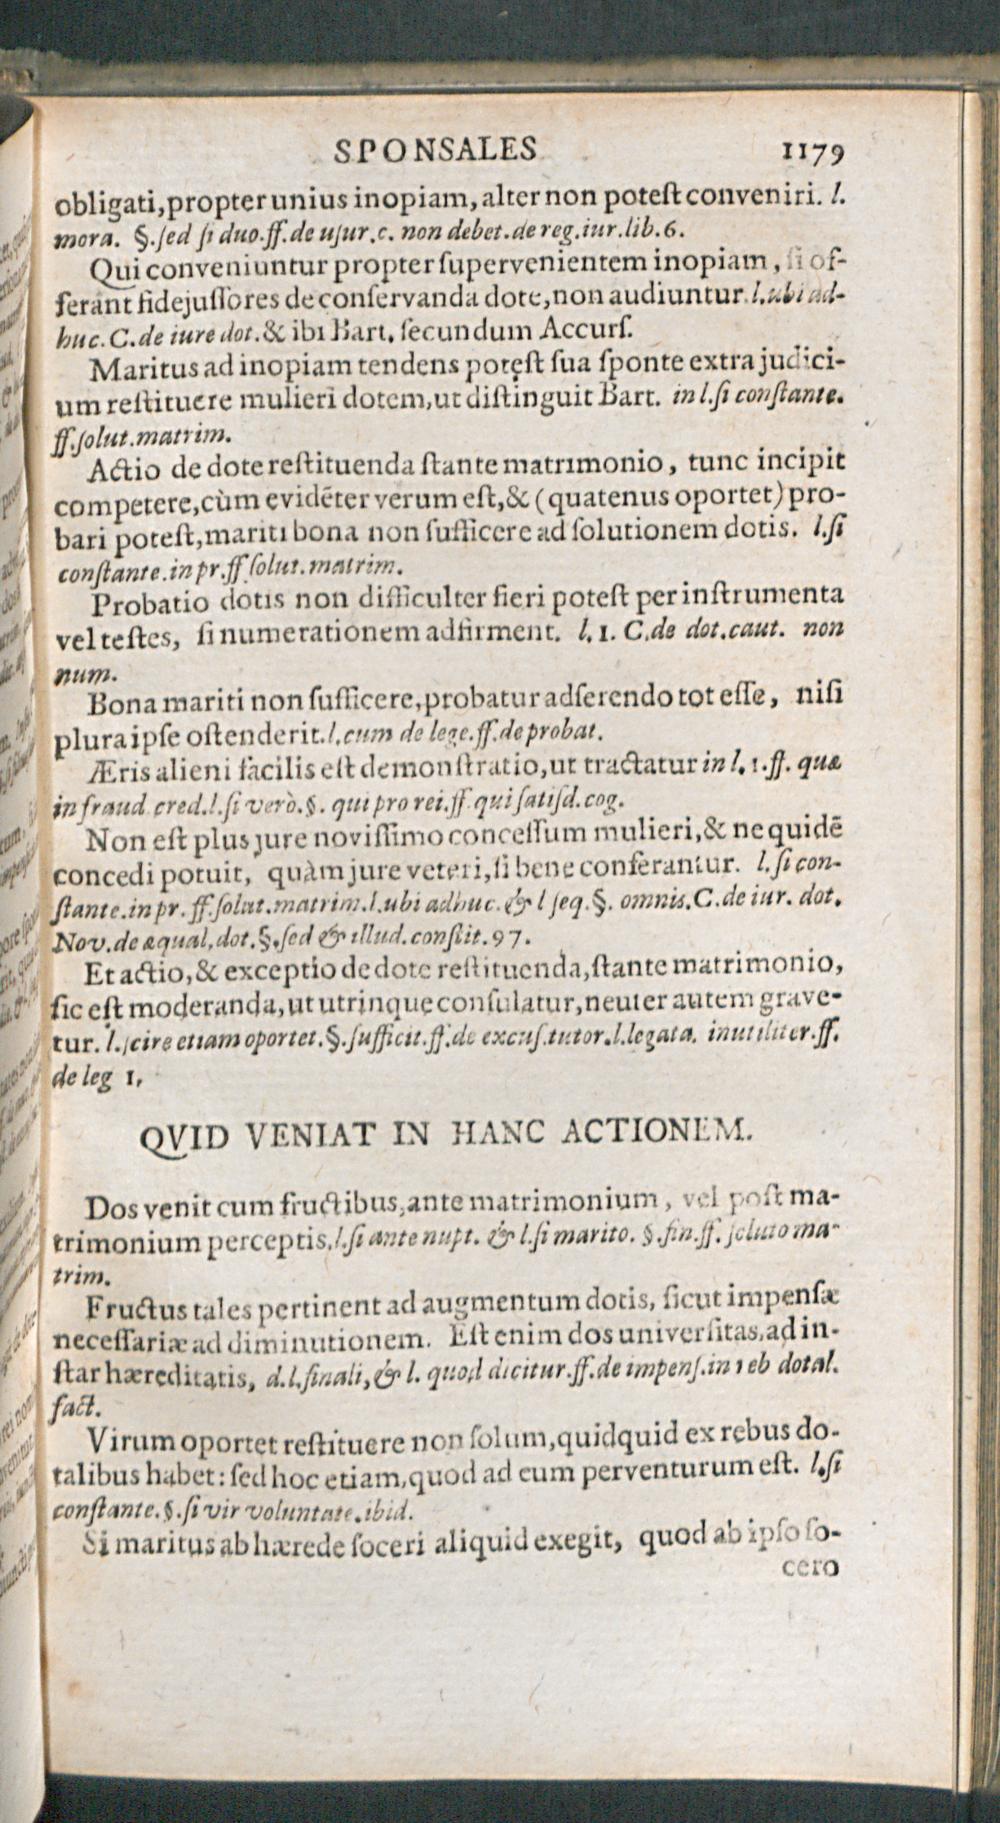 SPONSALES 1179
obligati, propter unius inopiam, alter non poteſt conveniri. l.
mora. §. ſed ſi duo. ff. de uſur. c. non debet. de reg. iur. lib. 6.
Qui conveniuntur propter ſupervenientem inopiam, ſi of-
ferant fidejuſſores de conſervanda dote, non audiuntur. l. ubi ad-
huc. C. de iure dot. & ibi Bart. ſecundum Accurſ.
Maritus ad inopiam tendens poteſt ſua ſponte extra judici-
um reſtituere mulieri dotem, ut diſtinguit Bart. in l. ſi conſtante.
ff. ſolut. matrim.
Actio de dote reſtituenda ſtante matrimonio, tunc incipit
competere, cùm evidēter verum eſt, & (quatenus oportet) pro-
bari poteſt, mariti bona non ſufficere ad ſolutionem dotis. l. ſi
conſtante. in pr. ff ſolut. matrim.
Probatio dotis non difficulter fieri poteſt per inſtrumenta
vel teſtes, ſi numerationem adfirment. l. 1. C. de dot. caut. non
num.
Bona mariti non ſufficere, probatur adſerendo tot eſſe, niſi
plura ipſe oſtenderit. l. cum de lege. ff. de probat.
Æris alieni facilis eſt demonſtratio, ut tractatur in l. 1. ff. quæ
in fraud cred. l. ſi verò. §. qui pro rei. ff qui ſatiſd. cog.
Non eſt plus jure noviſſimo conceſſum mulieri, & ne quidē
concedi potuit, quàm jure veteri, ſi bene conferantur. l. ſi con-
ſtante. in pr. ff. ſolut. matrim. l. ubi adhuc. & l ſeq. §. omnis. C. de iur. dot.
Nov. de æqual. dot. §. ſed & illud. conſtit. 97.
Et actio, & exceptio de dote reſtituenda, ſtante matrimonio,
ſic eſt moderanda, ut utrinque conſulatur, neuter autem grave-
tur. l. ſcire etiam oportet. §. ſufficit. ff. de excuſ. tutor. l. legata. inutiliter. ff.
de leg 1.
QVID VENIAT IN HANC ACTIONEM.
Dos venit cum fructibus, ante matrimonium, vel poſt ma-
trimonium perceptis. l. ſi ante nupt. & l. ſi marito. §. fin. ff. ſoluto ma-
trim.
Fructus tales pertinent ad augmentum dotis, ſicut impenſæ
neceſſariæ ad diminutionem. Eſt enim dos univerſitas, ad in-
ſtar hæreditatis, d. l. finali, & l. quod dicitur. ff. de impenſ. in reb dotal.
fact.
Virum oportet reſtituere non ſolum, quidquid ex rebus do-
talibus habet: ſed hoc etiam, quod ad eum perventurum eſt. l. ſi
conſtante. §. ſi vir voluntate. ibid.
Si maritus ab hærede ſoceri aliquid exegit, quod ab ipſo ſo-
cero